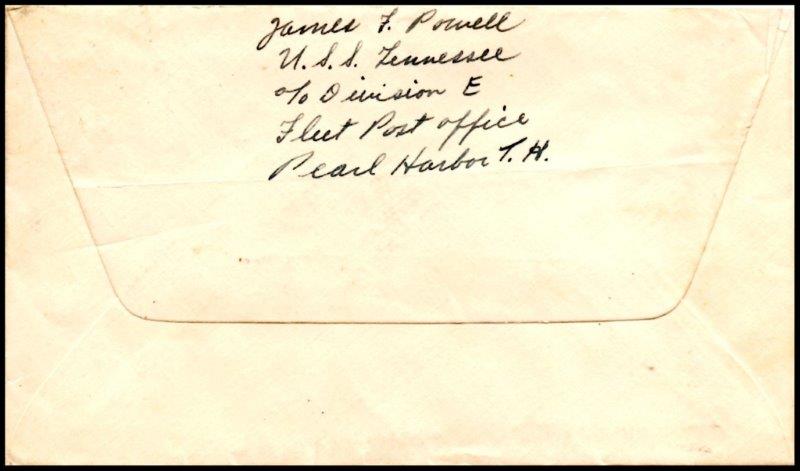 James F. Powell
U.S.S. Tennessee
c/o Division E
Fleet Post office
Pearl Harbor T.H.